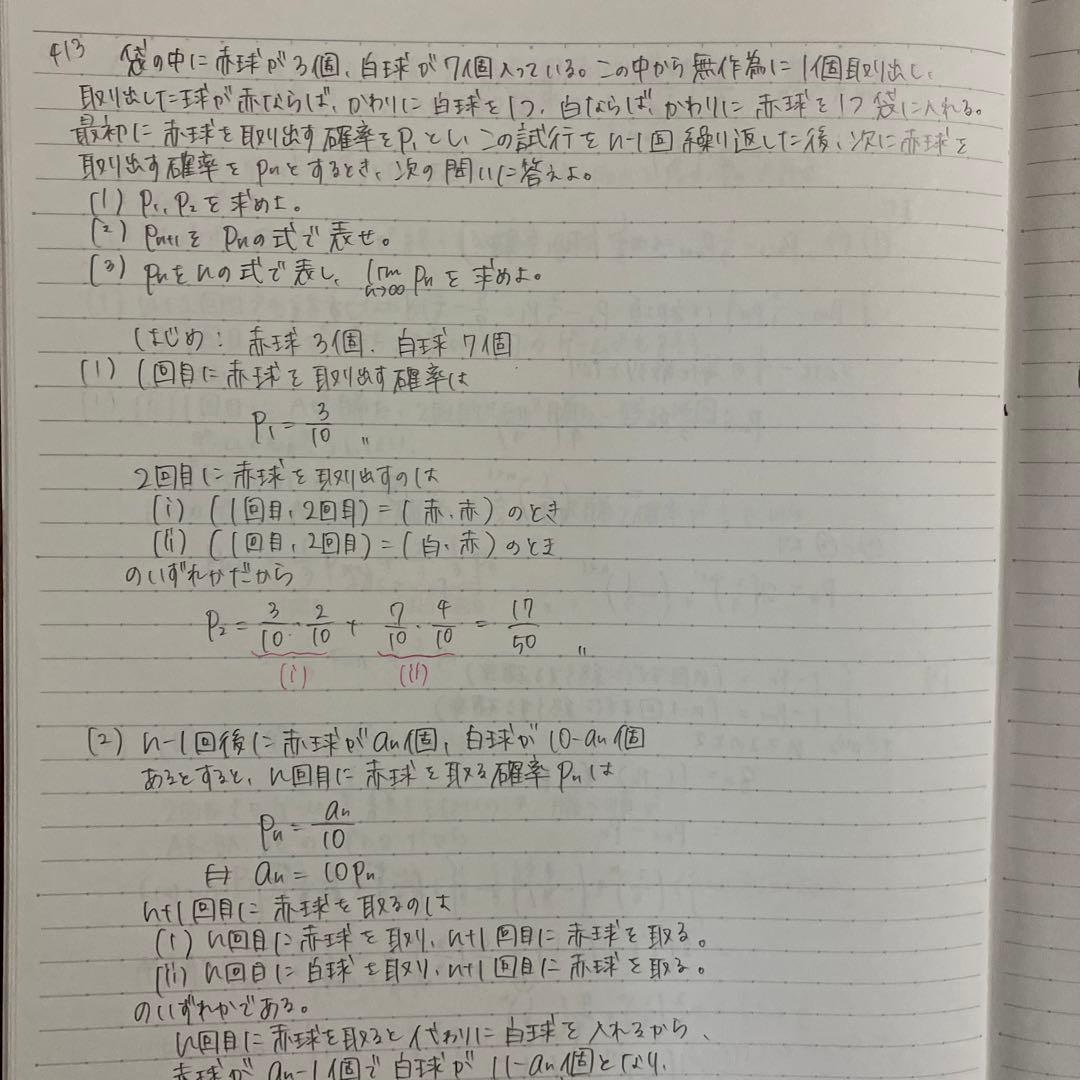 413 袋の中に赤球が3個、白球が7個入っている。この中から無作為に1個取り出し、
取り出した球が赤ならば、かわりに白球を1つ、白ならば、かわりに赤球を1つ袋に入れる。
最初に赤球を取り出す確率をp₁とし、この試行をn-1回繰り返した後、次に赤球を
取り出す確率をpnとするとき、次の問いに答えよ。
(1) p₁, p₂を求めよ。
(2) pn+1をpnの式で表せ。
(3) pnをnの式で表し、lim n→∞ pnを求めよ。
はじめ: 赤球3個、白球7個
(1) 1回目に赤球を取り出す確率は
p₁ = 3/10 〃
2回目に赤球を取り出すのは
(i) (1回目, 2回目) = (赤, 赤) のとき
(ii) (1回目, 2回目) = (白, 赤) のとき
のいずれかだから
p₂ = 3/10 · 2/10 + 7/10 · 4/10 = 17/50 〃
(i) (ii)
(2) n-1回後に赤球がan個、白球が10-an個
あるとすると、n回目に赤球を取る確率pnは
pn = an/10
⇔ an = 10pn
n+1回目に赤球を取るのは
(i) n回目に赤球を取り、n+1回目に赤球を取る。
(ii) n回目に白球を取り、n+1回目に赤球を取る。
のいずれかである。
n回目に赤球を取ると代わりに白球を入れるから、
赤球がan-1個で白球が11-an個となり、